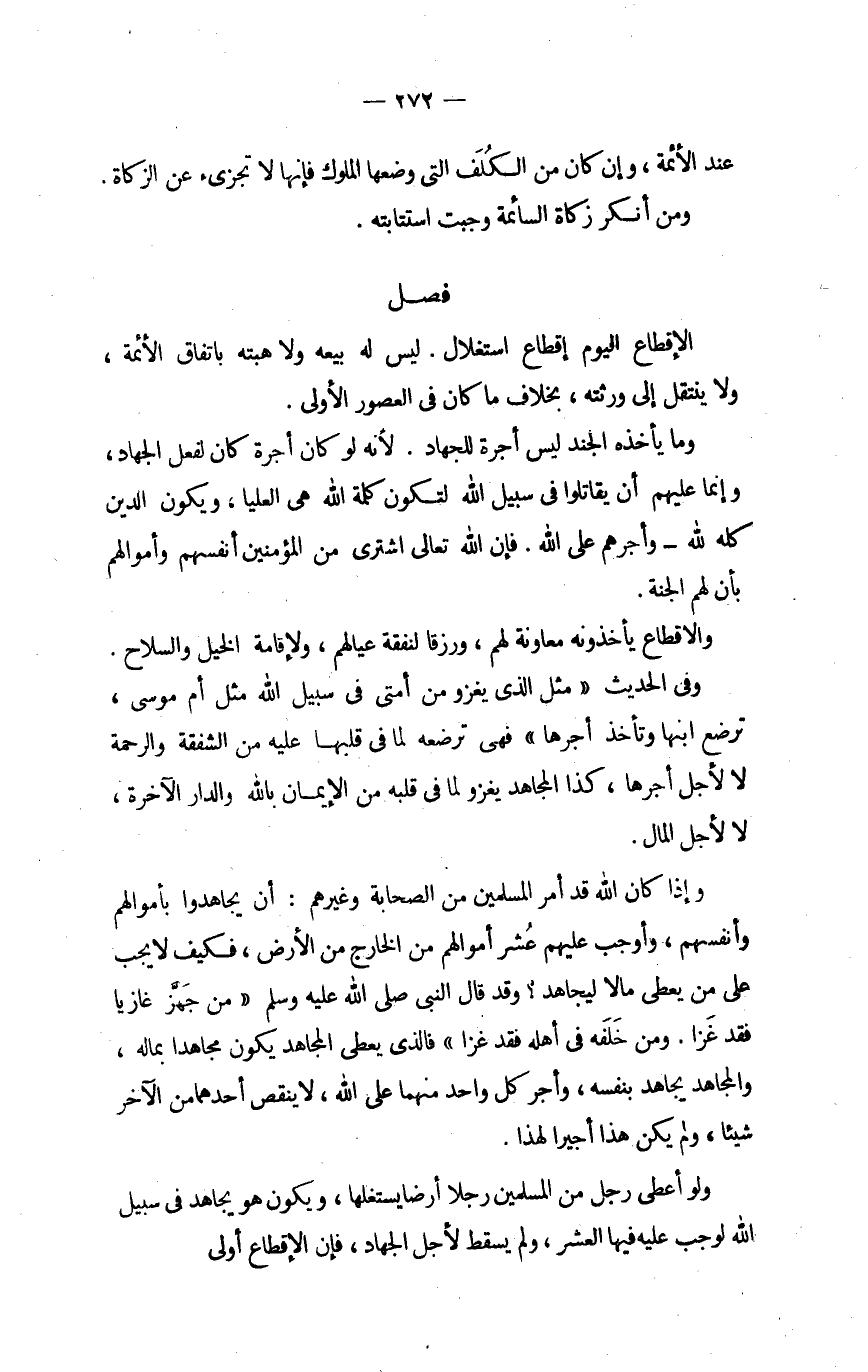 — ٢٧٢ —
عند الأئمة ، وإن كان من الكُلَف التى وضعها الملوك فإنها لا تجزىء عن الزكاة .
ومن أنكر زكاة السائمة وجبت استتابته .
فصل
الإقطاع اليوم إقطاع استغلال . ليس له بيعه ولا هبته باتفاق الأئمة ،
ولا ينتقل إلى ورثته ، بخلاف ما كان فى العصور الأولى .
وما يأخذه الجند ليس أجرة للجهاد . لأنه لو كان أجرة كان لفعل الجهاد ،
وإنما عليهم أن يقاتلوا فى سبيل الله لتكون كلمة الله هى العليا ، ويكون الدين
كله لله – وأجرهم على الله . فإن الله تعالى اشترى من المؤمنين أنفسهم وأموالهم
بأن لهم الجنة .
والاقطاع يأخذونه معاونة لهم ، ورزقا لنفقة عيالهم ، ولإقامة الخيل والسلاح .
وفى الحديث « مثل الذى يغزو من أمتى فى سبيل الله مثل أم موسى ،
ترضع ابنها وتأخذ أجرها » فهى ترضعه لما فى قلبها عليه من الشفقة والرحمة
لا لأجل أجرها ، كذا المجاهد يغزو لما فى قلبه من الإيمان بالله والدار الآخرة ،
لا لأجل المال .
وإذا كان الله قد أمر المسلمين من الصحابة وغيرهم : أن يجاهدوا بأموالهم
وأنفسهم ، وأوجب عليهم عُشر أموالهم من الخارج من الأرض ، فكيف لايجب
على من يعطى مالا ليجاهد ؟ وقد قال النبى صلى الله عليه وسلم « من جَهَّزَ غازيا
فقد غَزا . ومن خَلَفه فى أهله فقد غزا » فالذى يعطى المجاهد يكون مجاهدا بماله ،
والمجاهد يجاهد بنفسه ، وأجر كل واحد منهما على الله ، لاينقص أحدهمامن الآخر
شيئا ، ولم يكن هذا أجيرا لهذا .
ولو أعطى رجل من المسلمين رجلا أرضايستغلها ، ويكون هو يجاهد فى سبيل
الله لوجب عليه فيها العشر ، ولم يسقط لأجل الجهاد ، فإن الإقطاع أولى